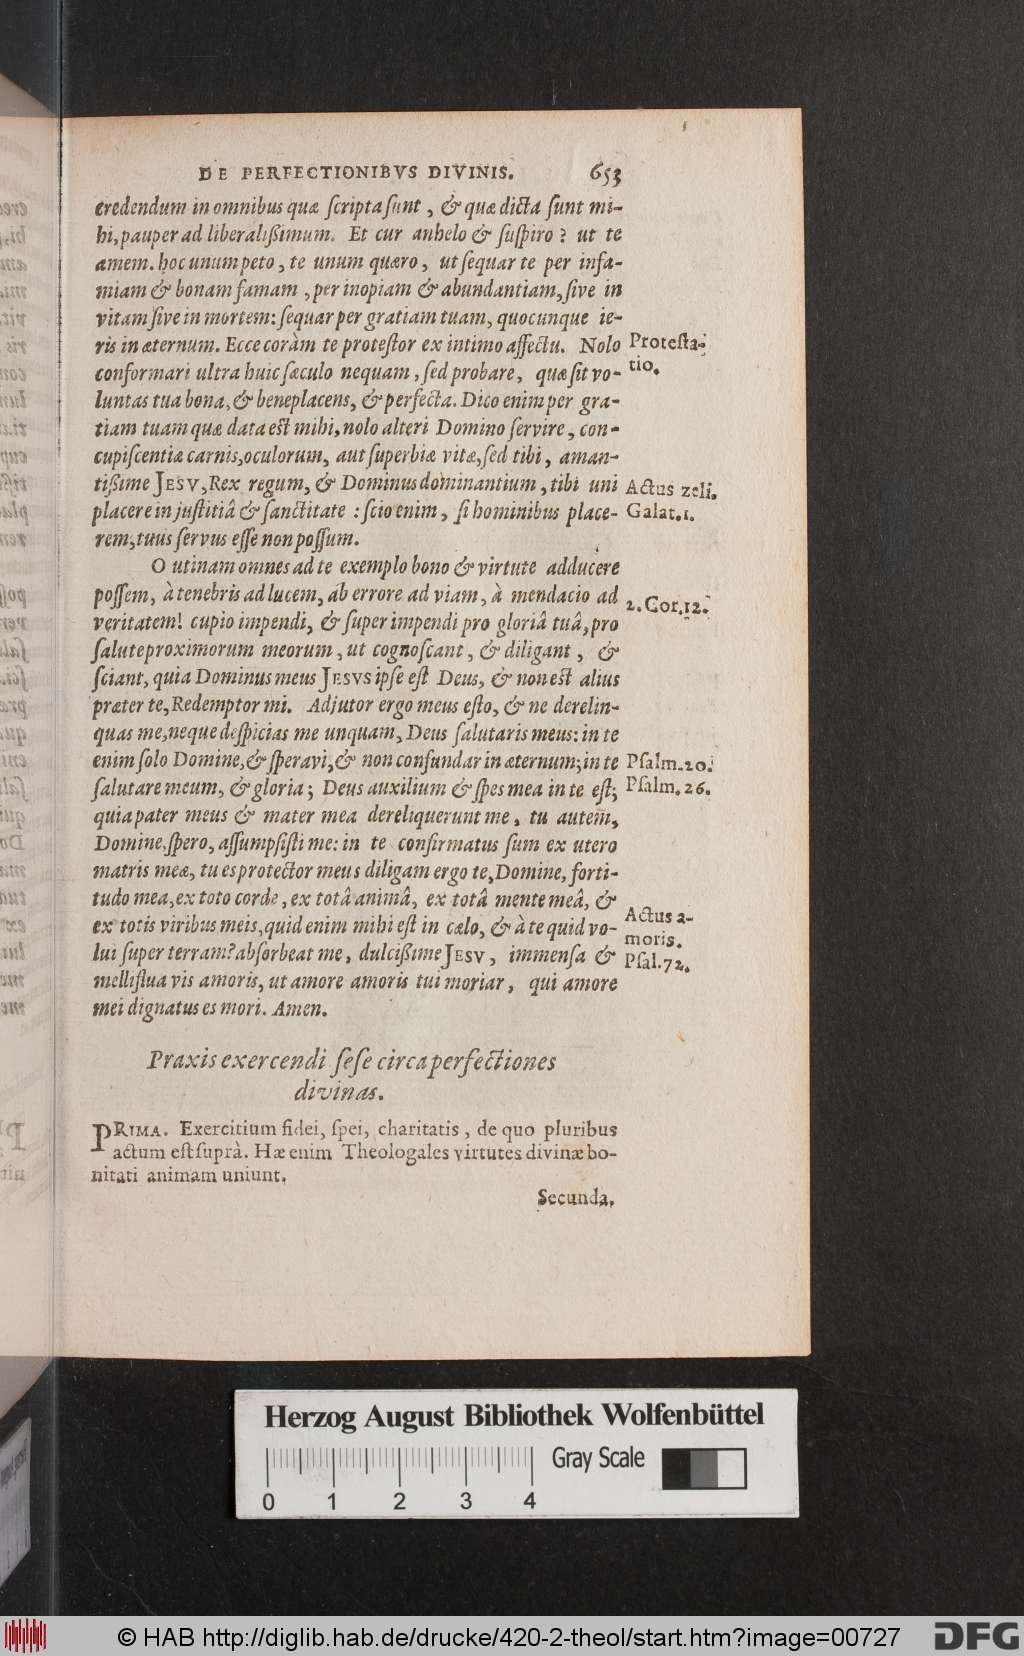 DE PERFECTIONIBVS DIVINIS. 653
credendum in omnibus quæ scripta sunt, & quæ dicta sunt mi-
hi, pauper ad liberalißimum. Et cur anhelo & suspiro? ut te
amem. hoc unum peto, te unum quæro, ut sequar te per infa-
miam & bonam famam, per inopiam & abundantiam, sive in
vitam sive in mortem: sequar per gratiam tuam, quocunque ie-
ris in æternum. Ecce coràm te protestor ex intimo affectu. Nolo
Protesta-
tio.
conformari ultra huic sæculo nequam, sed probare, quæ sit vo-
luntas tua bona, & beneplacens, & perfecta. Dico enim per gra-
tiam tuam quæ data est mihi, nolo alteri Domino servire, con-
cupiscentiæ carnis, oculorum, aut superbiæ vitæ, sed tibi, aman-
tißime JESV, Rex regum, & Dominus dominantium, tibi uni
Actus zeli.
placere in justitiâ & sanctitate: scio enim, si hominibus place-
Galat. 1.
rem, tuus servus esse non possum.
O utinam omnes ad te exemplo bono & virtute adducere
possem, à tenebris ad lucem, ab errore ad viam, à mendacio ad
2. Cor. 12.
veritatem! cupio impendi, & super impendi pro gloriâ tuâ, pro
salute proximorum meorum, ut cognoscant, & diligant, &
sciant, quia Dominus meus JESVS ipse est Deus, & non est alius
præter te, Redemptor mi. Adjutor ergo meus esto, & ne derelin-
quas me, neque despicias me unquam, Deus salutaris meus: in te
enim solo Domine, & speravi, & non confundar in æternum; in te
Psalm. 20.
salutare meum, & gloria; Deus auxilium & spes mea in te est;
Psalm. 26.
quia pater meus & mater mea dereliquerunt me, tu autem,
Domine, spero, assumpsisti me: in te confirmatus sum ex utero
matris meæ, tu es protector meus diligam ergo te, Domine, forti-
tudo mea, ex toto corde, ex totâ animâ, ex totâ mente meâ, &
ex totis viribus meis, quid enim mihi est in cælo, & à te quid vo-
Actus a-
moris.
lui super terram? absorbeat me, dulcißime JESV, immensa &
Psal. 72.
melliflua vis amoris, ut amore amoris tui moriar, qui amore
mei dignatus es mori. Amen.
Praxis exercendi sese circa perfectiones
divinas.
PRIMA. Exercitium fidei, spei, charitatis, de quo pluribus
actum est suprà. Hæ enim Theologales virtutes divinæ bo-
nitati animam uniunt.
Secunda.
Herzog August Bibliothek Wolfenbüttel
Gray Scale
0 1 2 3 4
© HAB http://diglib.hab.de/drucke/420-2-theol/start.htm?image=00727
DFG